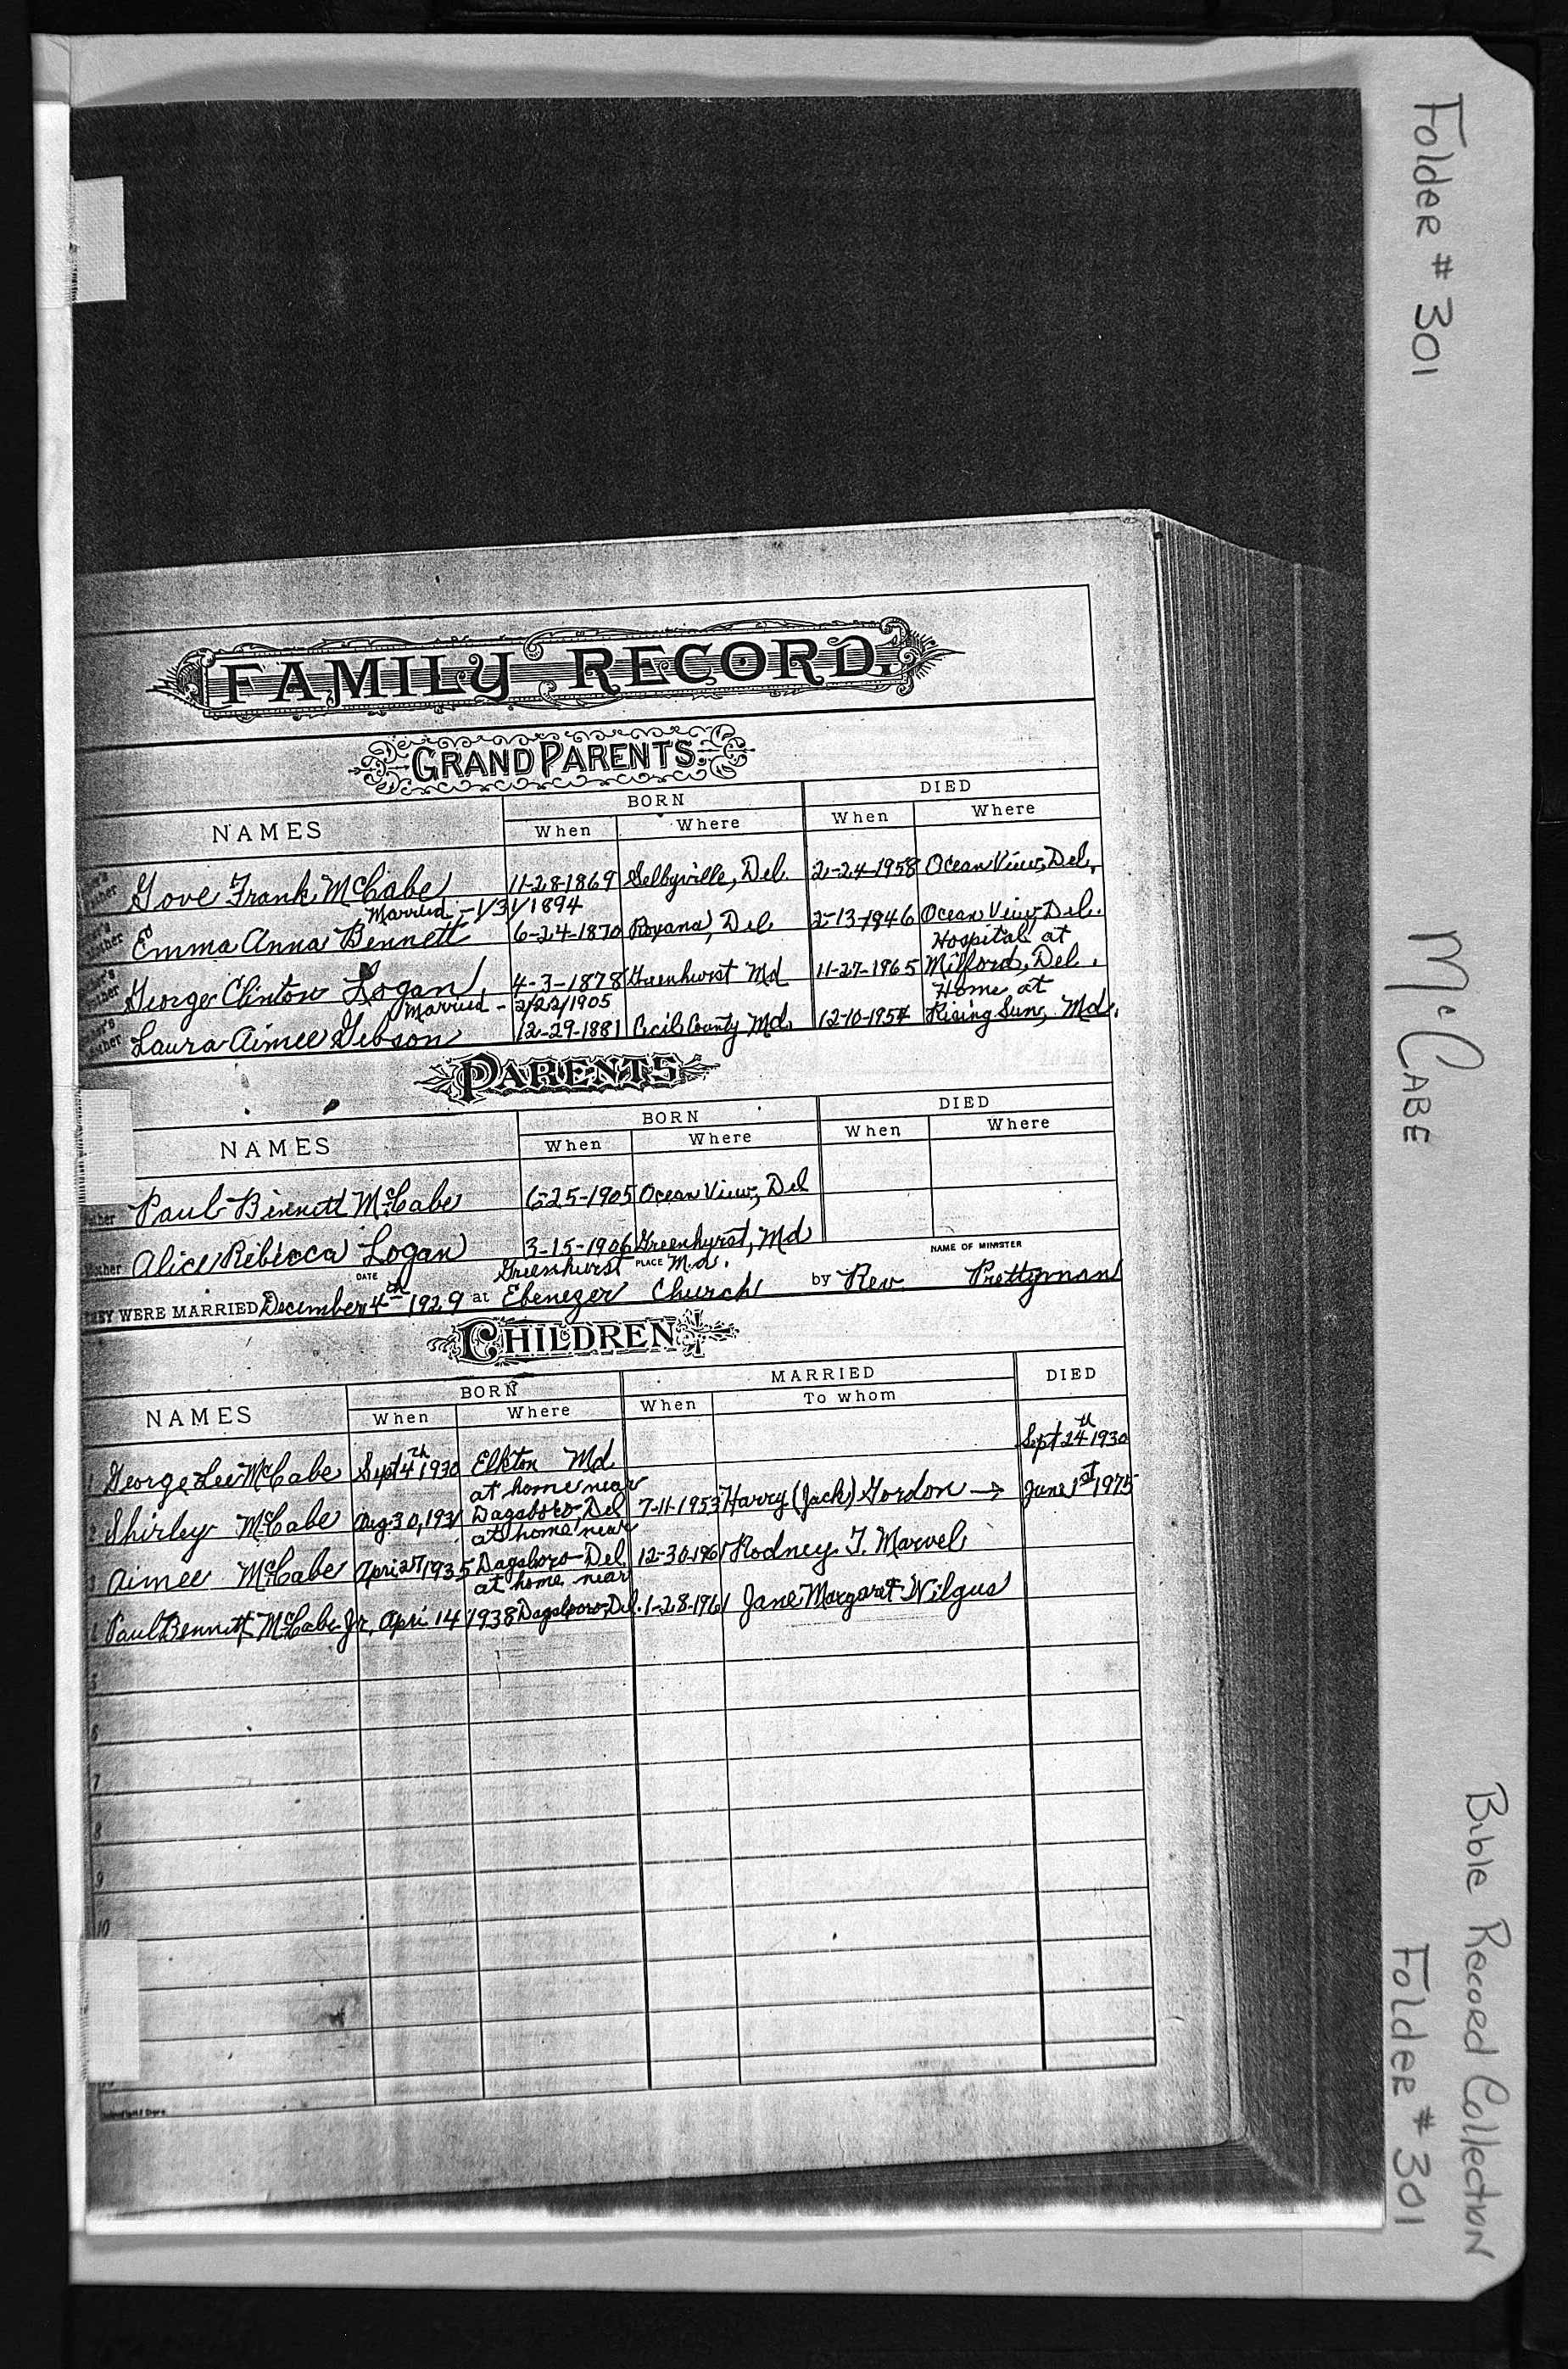 Folder # 301
McCabe
Bible Record Collection
Folder # 301
FAMILY RECORD.
GRAND PARENTS.
NAMES BORN DIED
When Where When Where
Gove Frank McCabe 11-28-1869 Selbyville, Del. 2-24-1958 Ocean View, Del.
Married - 1/31/1894
Emma Anna Bennett 6-24-1870 Roxana, Del 2-13-1946 Ocean View, Del.
Hospital at
George Clinton Logan 4-3-1878 Greenhurst Md 11-27-1965 Milford, Del.
Married - 2/22/1905 Home at
Laura Aimee Gibson 12-29-1881 Cecil County Md. 12-10-1954 Rising Sun, Md.
PARENTS
NAMES BORN DIED
When Where When Where
Father Paul Bennett McCabe 6-25-1905 Ocean View, Del
Mother Alice Rebecca Logan 3-15-1906 Greenhurst, Md
DATE Greenhurst PLACE Md. NAME OF MINISTER
THEY WERE MARRIED December 4th 1929 at Ebenezer Church by Rev. Prettyman
CHILDREN
NAMES BORN MARRIED DIED
When Where When To whom
1 George Lee McCabe Sept 4th 1930 Elkton Md Sept 24th 1930
at home near
2 Shirley McCabe Aug. 30, 1931 Dagsboro, Del 7-11-1953 Harry (Jack) Gordon → June 1st 1975
at home near
3 Aimee McCabe Apri 27 1935 Dagsboro-Del. 12-30-1961 Rodney T. Marvel
at home near
4 Paul Bennett McCabe Jr. Apri 14 1938 Dagsboro, Del. 1-28-1961 Jane Margaret Wilgus
5
6
7
8
9
10